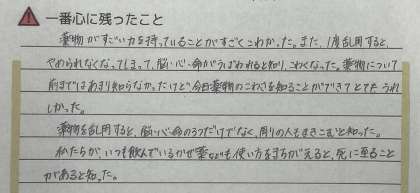 一番心に残ったこと
薬物がすごい力を持っていることがすごくこわかった。また、1度乱用すると、
やめられなくなってしまって、脳・心・命がうばわれると知り、こわくなった。薬物について
前まではあまり知らなかったけど今日薬物のこわさを知ることができてとてもうれ
しかった。
薬物を乱用すると、脳・心・命の3つだけでなく、周りの人もまきこむと知った。
私たちが、いつも飲んでいるかぜ薬なども使い方をまちがえると、死に至ること
があると知った。